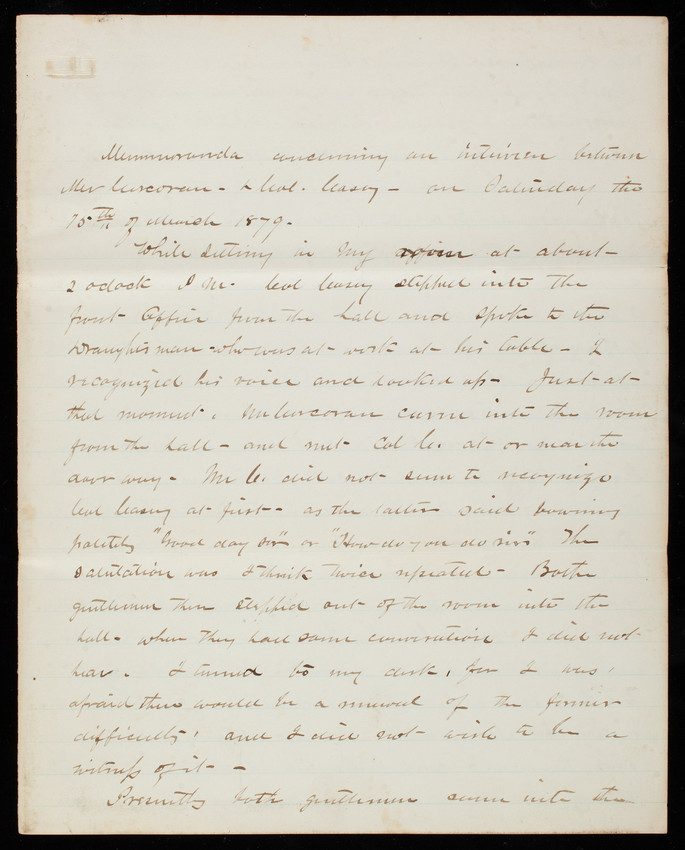 Memmoranda concerning an interview between
Mr Corcoran - & Col. Casey - on Saturday the
15th of March 1879.
While sitting in my office at about
2 oclock P M. Col Casey stepped into the
front Office from the hall and spoke to the
Draughtsman - who was at work at his table - I
recognized his voice and looked up - Just at
that moment. Mr Corcoran came into the room
from the hall - and met Col C. at or near the
door way. Mr C. did not seem to recognize
Col Casey at first - as the latter said bowing
politely "Good day Sir" or "How do you do sir" The
Salutation was I think twice repeated - Both
gentlemen then stepped out of the room into the
hall - where they had some converation I did not
hear. I turned to my desk, for I was,
afraid there would be a renewal of the former
difficulty, and I did not wish to be a
witness of it -
Presently both gentlemen came into the